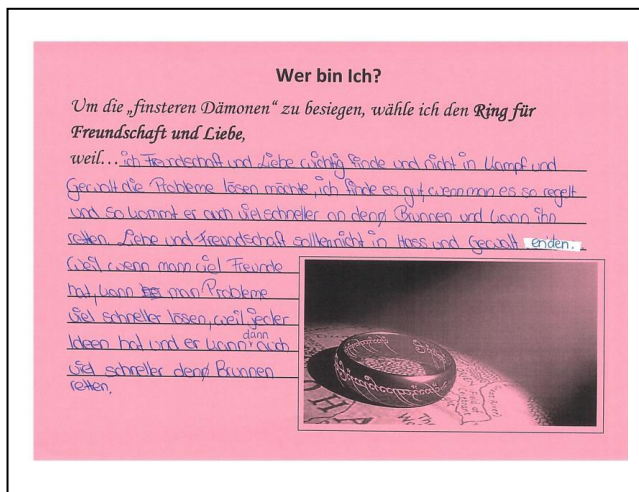 Wer bin Ich?
Um die „finsteren Dämonen“ zu besiegen, wähle ich den Ring für
Freundschaft und Liebe,
weil... ich Freundschaft und Liebe wichtig finde und nicht in Kampf und
Gewalt die Probleme lösen möchte, ich finde es gut, wenn man es so regelt
und so kommt er auch viel schneller an den Brunnen und kann ihn
retten. Liebe und Freundschaft sollten nicht in Hass und Gewalt enden.
Weil wenn mann viel Freunde
hat, kann man Probleme
viel schneller lösen, weil jeder
Ideen hat und er kann dann auch
viel schneller den Brunnen
retten.